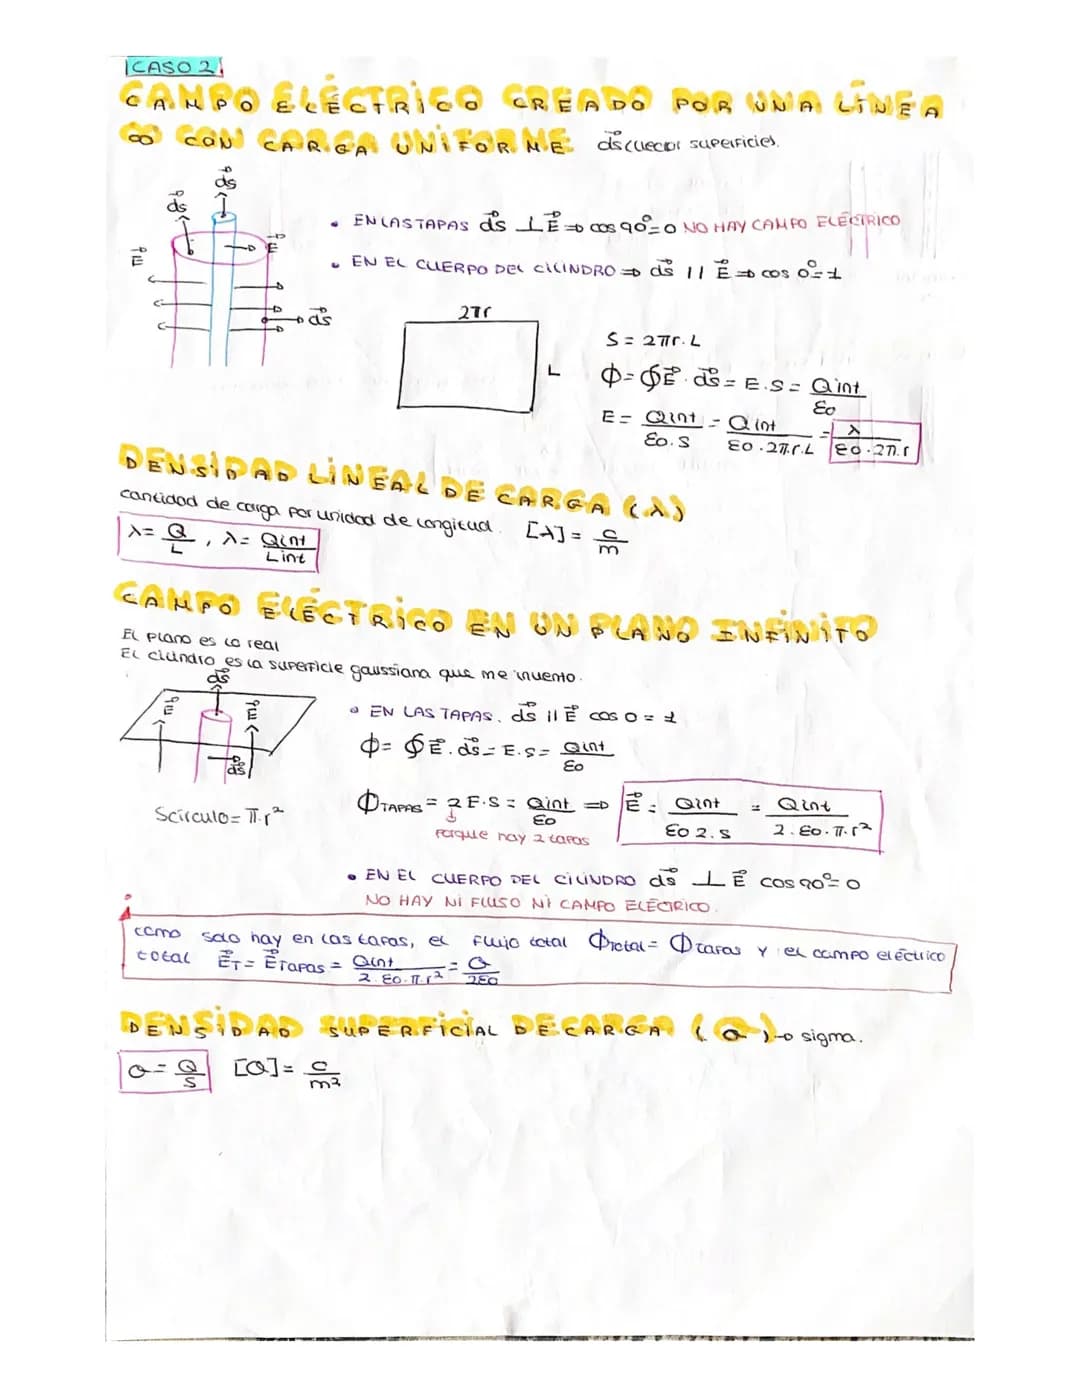 CASO 2
CAMPO ELÉCTRICO CREADO POR UNA LÍNEA
∞ CON CARGA UNIFORME. d⃗s (vector superficie).
d⃗s
d⃗s
E⃗
E⃗
d⃗s
• EN LAS TAPAS d⃗s ⊥ E⃗ ⇒ cos 90º = 0 NO HAY CAMPO ELÉCTRICO
• EN EL CUERPO DEL CILINDRO ⇒ d⃗s // E⃗ ⇒ cos 0º = 1
2πr
L
S = 2πr·L
Φ = ∮E⃗·d⃗s = E·S = Qint/ε0
E = Qint/ε0·S = Qint/ε0·2π·r·L = λ/ε0·2π·r
DENSIDAD LINEAL DE CARGA (λ)
cantidad de carga por unidad de longitud. [λ] = C/m
λ = Q/L, λ = Qint/Lint
CAMPO ELÉCTRICO EN UN PLANO INFINITO
El plano es lo real
El cilindro es la superficie gaussiana que me invento.
d⃗s
E⃗
E⃗
d⃗s
Scírculo = π·r²
• EN LAS TAPAS. d⃗s // E⃗ cos 0 = 1
Φ = ∮E⃗·d⃗s = E·S = Qint/ε0
ΦTAPAS = 2E·S = Qint/ε0 ⇒ E⃗ = Qint/ε0 2·S = Qint/2·ε0·π·r²
porque hay 2 tapas
• EN EL CUERPO DEL CILINDRO d⃗s ⊥ E⃗ cos 90º = 0
NO HAY NI FLUJO NI CAMPO ELÉCTRICO.
como solo hay en las tapas, el flujo total Φtotal = Φtapas y el campo eléctrico
total E⃗T = E⃗Tapas = Qint/2·ε0·π·r² = σ/2ε0
DENSIDAD SUPERFICIAL DE CARGA (σ) → sigma.
σ = Q/S [σ] = C/m²